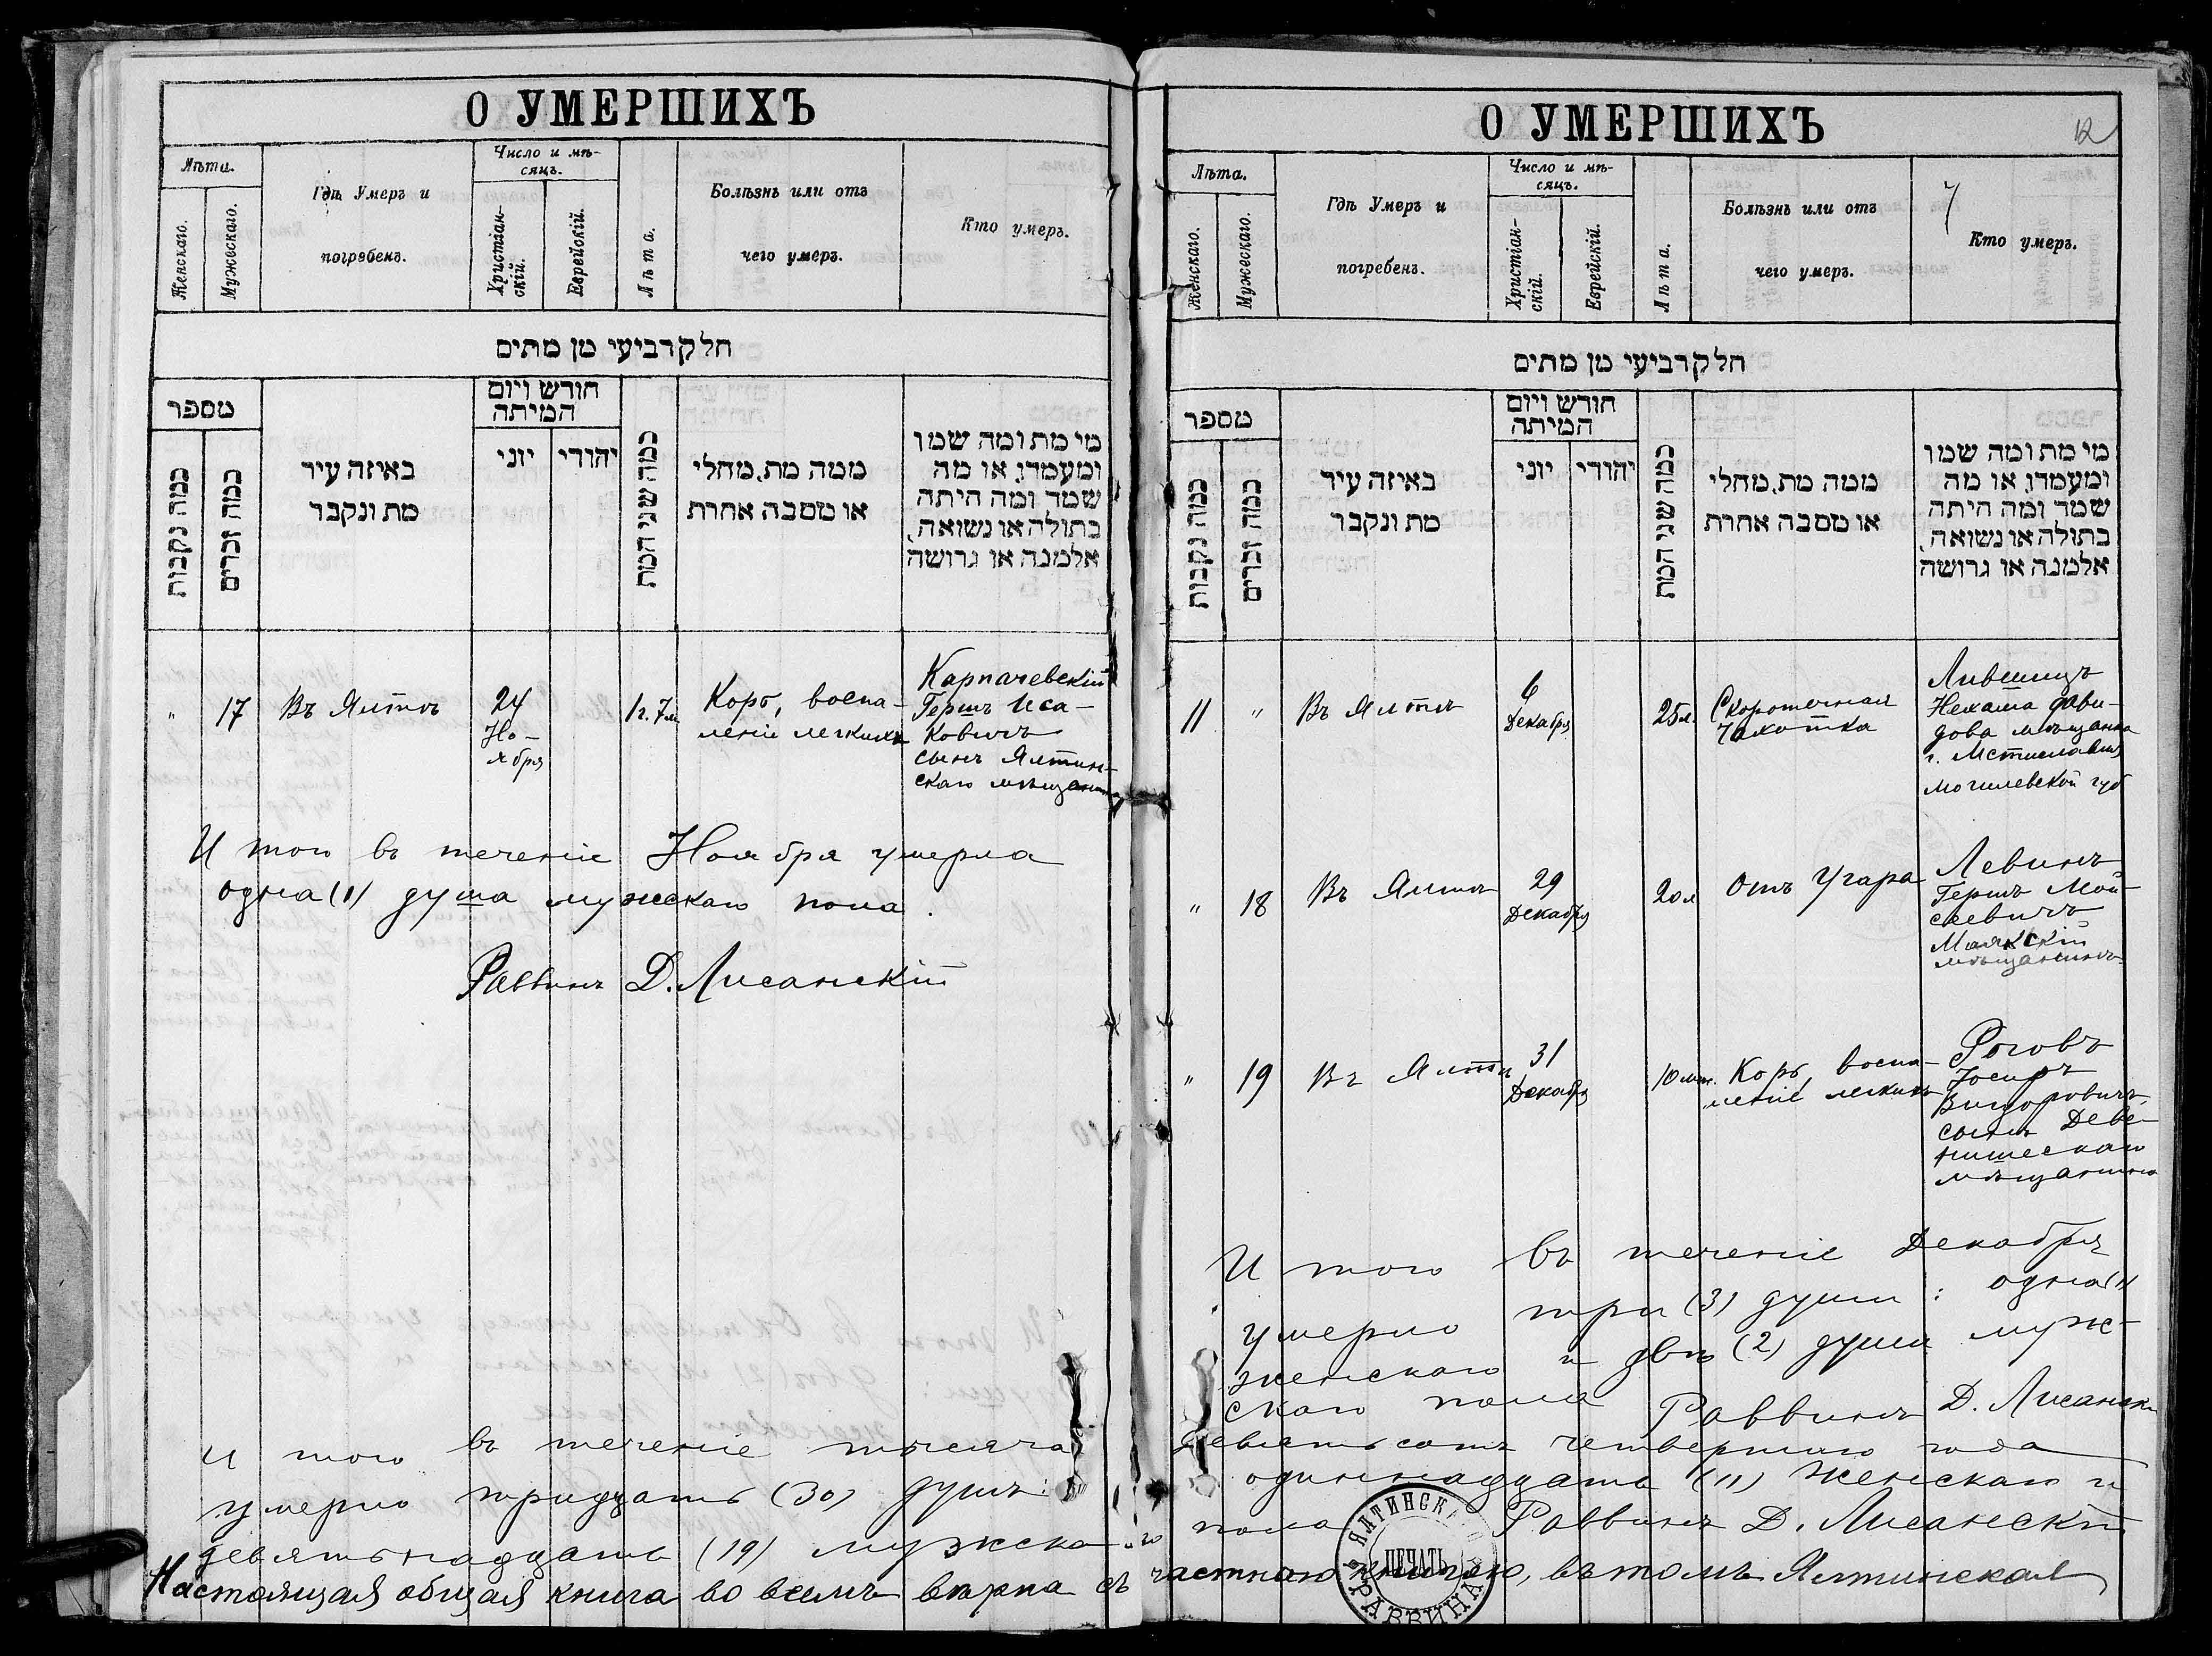 О УМЕРШИХЪ
Лѣта.
Женскаго.
Мужескаго.
Гдѣ Умеръ и
погребенъ.
Число и мѣ-
сяцъ.
Христіан-
скій.
Еврейскій.
Лѣта.
Болѣзнь или отъ
чего умеръ.
Кто умеръ.
חלק רביעי מן מתים
מספר
כמה נקבות
כמה זכרים
באיזה עיר
מת ונקבר
חודש ויום
המיתה
יוני
יהודי
כמה שני המת
ממה מת, מחלי
או מסבה אחרת
מי מת ומה שמו
ומעמדו, או מה
שמד ומה היתה
בתולה או נשואה,
אלמנה או גרושה
" 17
Въ Ялтѣ
24
Но-
ября
1г. 7м.
Корь, воспа-
леніе легкихъ
Карпачевскій
Гершъ Иса-
ковичъ
сынъ Ялтин-
скаго мѣщанина
И того въ теченіе Ноября умерла
одна (1) душа мужскаго пола.
Раввинъ Д. Лисанскій
И того въ теченіе тысяча
умерло тридцать (30) душъ:
девятьнадцать (19) мужска
Настоящая общая книга во всемъ вѣрна съ
О УМЕРШИХЪ
12
Лѣта.
Женскаго.
Мужескаго.
Гдѣ Умеръ и
погребенъ.
Число и мѣ-
сяцъ.
Христіан-
скій.
Еврейскій.
Лѣта.
Болѣзнь или отъ
чего умеръ.
Кто умеръ.
חלק רביעי מן מתים
מספר
כמה נקבות
כמה זכרים
באיזה עיר
מת ונקבר
חודש ויום
המיתה
יוני
יהודי
כמה שני המת
ממה מת, מחלי
או מסבה אחרת
מי מת ומה שמו
ומעמדו, או מה
שמד ומה היתה
בתולה או נשואה,
אלמנה או גרושה
11 "
Въ Ялтѣ
6
Декабря
25 л.
Скоротечная
чахотка
Лившицъ
Нехама Дави-
дова мѣщанка
г. Мстиславля
Могилевской губ
" 18
Въ Ялтѣ
29
Декабря
20 л
Отъ Угара
Левинъ
Гершъ Мой-
сеевичъ
Маякскій
мѣщанинъ
" 19
Въ Ялтѣ
31
Декабря
10 мѣс.
Корь, воспа-
леніе легкихъ
Роговъ
Іосифъ
Вигдоровичъ,
сынъ Деве-
нишескаго
мѣщанина
И того въ теченіе Декабря
умерло три (3) души: одна (1)
женскаго и двѣ (2) души муж-
скаго пола Раввинъ Д. Лисанскі
девятьсотъ четвертаго года
одиннадцать (11) женскаго и
го пола Раввинъ Д. Лисанскій
частною книгою, въ томъ Ялтинская
ЯЛТИНСКАГО РАВВИНА
ПЕЧАТЬ